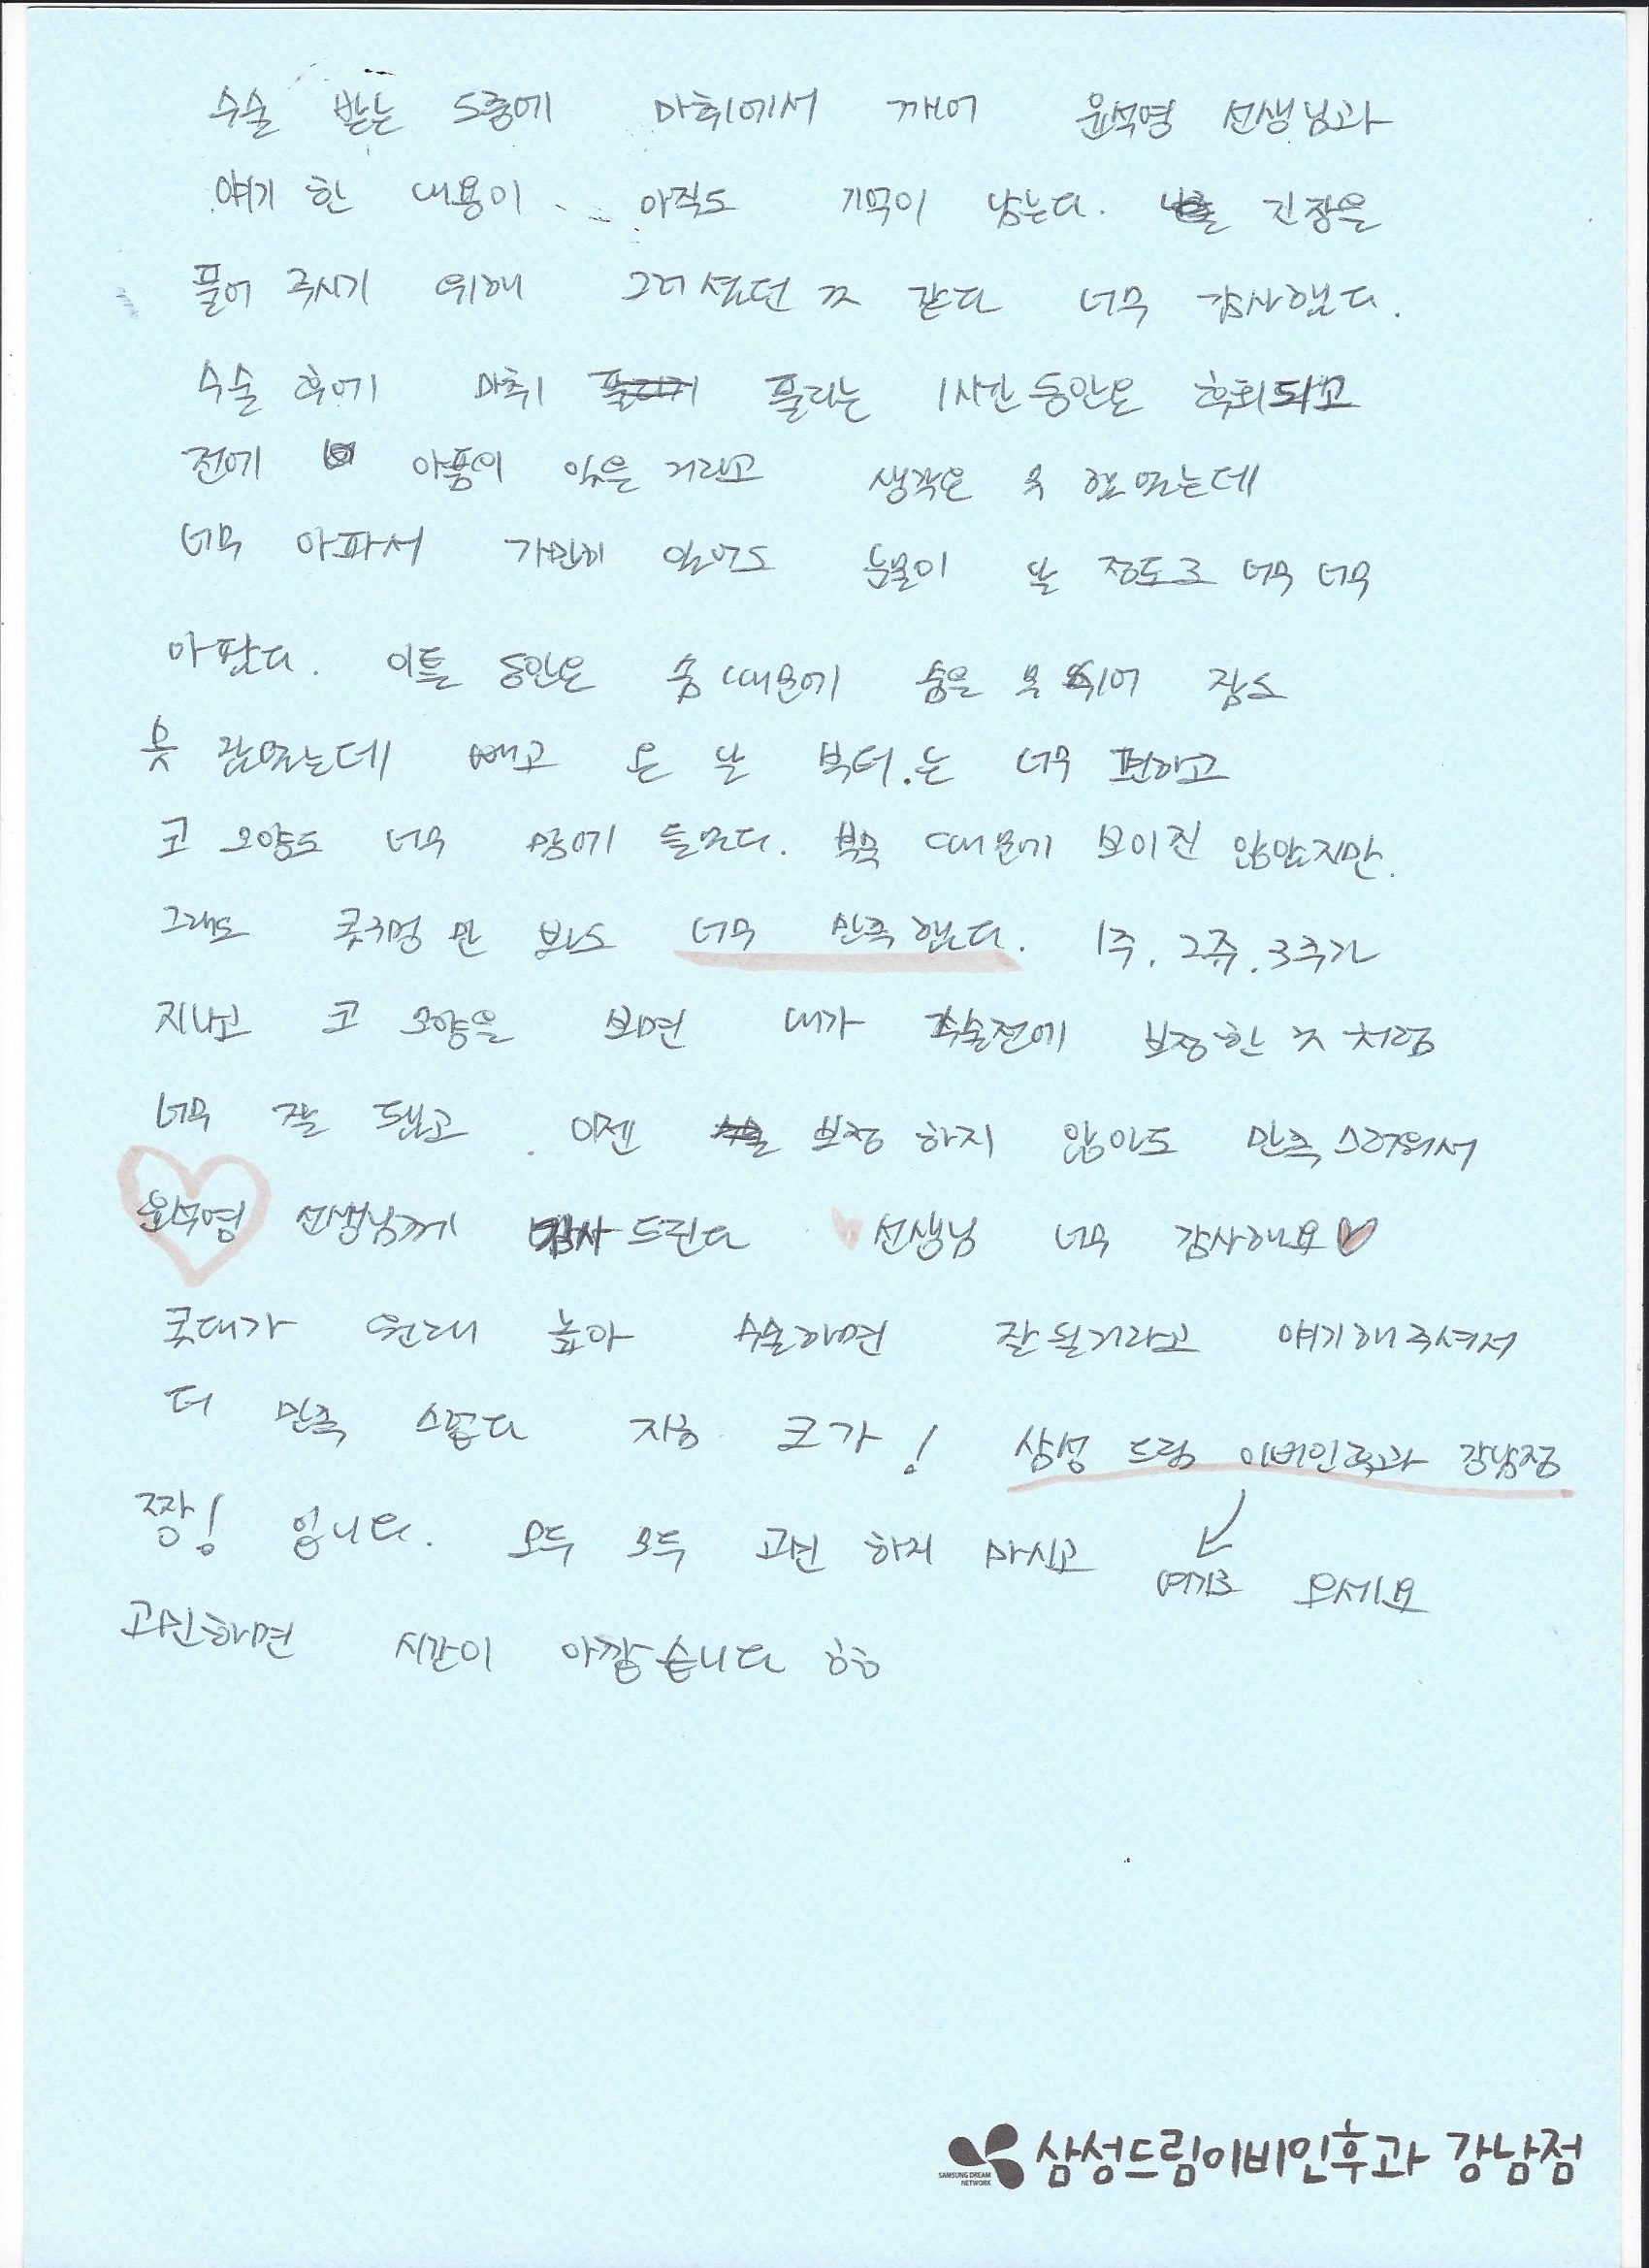 수술 받는 도중에 마취에서 깨어 윤석영 선생님과
얘기 한 내용이 아직도 기억이 남는다. 긴장을
풀어 주시기 위해 그러셨던 것 같다 너무 감사했다.
수술 후에 마취 풀리는 1시간 동안은 후회되고
전에 아픔이 있을 거라고 생각은 못 했었는데
너무 아파서 가만히 있어도 눈물이 날 정도로 너무 너무
아팠다. 이틀 동안은 솜 때문에 숨을 못 쉬어 잠도
못 잤었는데 빼고 온 날 부터.는 너무 편하고
코 모양도 너무 맘에 들었다. 붓죽 때문에 보이진 않았지만.
그래도 콧구멍 만 봐도 너무 만족했다. 1주. 2주. 3주가
지나고 코 모양을 보면 내가 수술전에 보정한 것 처럼
너무 잘 됐고. 이젠 보정 하지 않아도 만족스러워서
윤석영 선생님께 감사 드린다 선생님 너무 감사해요
콧대가 원래 높아 수술하면 잘될거라고 얘기해주셔서
더 만족 스럽다 지금 코가! 삼성 드림 이비인후과 강남점
짱! 입니다. 모두 모두 고민 하지 마시고 여기로 오세요
고민하면 시간이 아깝습니다 ㅎㅎ
SAMSUNG DREAM NETWORK 삼성드림이비인후과 강남점